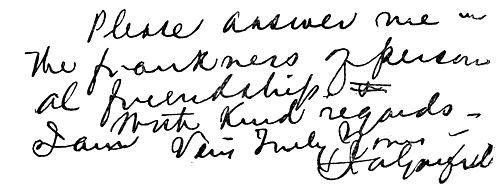 Please answer me in
the frankness of person
al friendship.
With Kind regards -
I am Very Truly Yours -